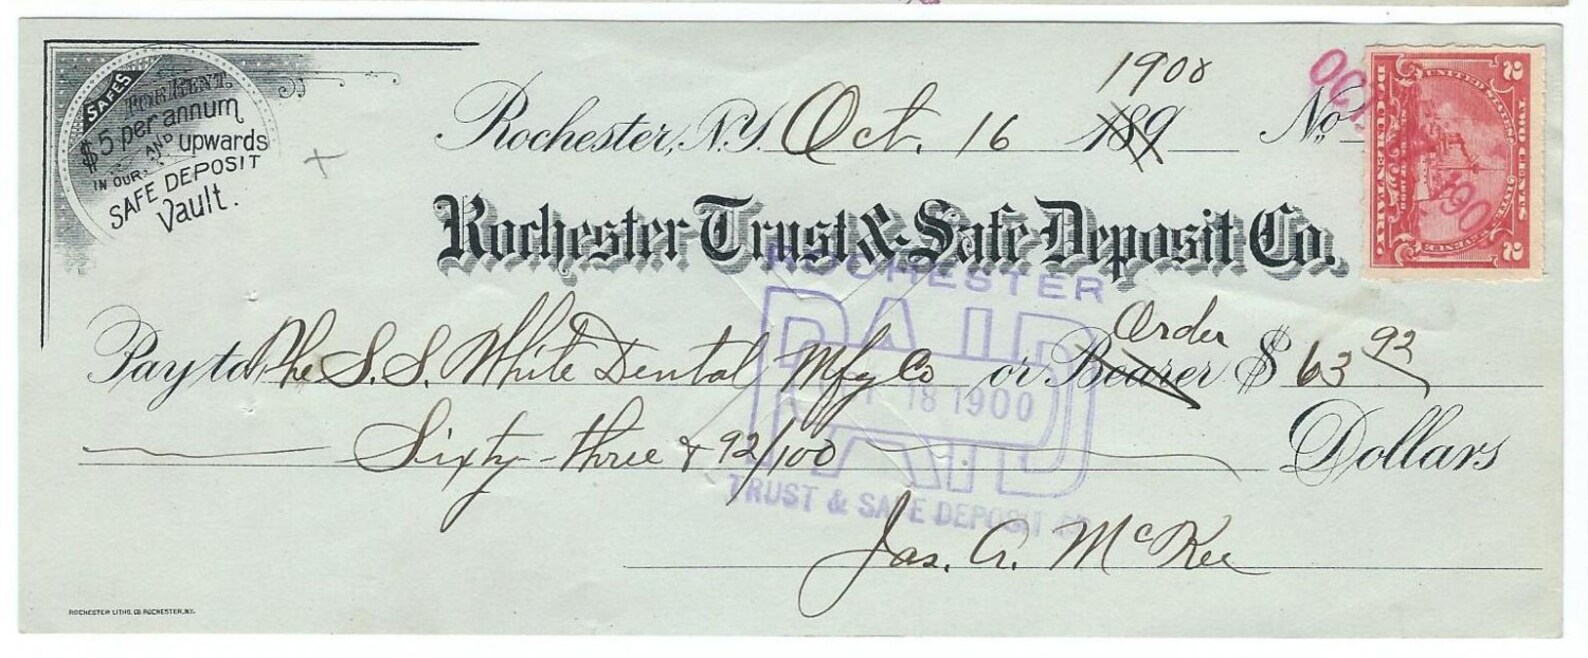 SAFES
FOR RENT.
$5 per annum
AND upwards
IN OUR
SAFE DEPOSIT
Vault.
1900
Rochester, N.Y. Oct. 16 189 No
Rochester Trust & Safe Deposit Co.
UNITED STATES
INTER. REVENUE
DOCUMENTARY
TWO CENTS
2
2
OCT
190
Order
Pay to The S.S. White Dental Mfg Co or Bearer $ 63 92
Sixty-three & 92/100 Dollars
ROCHESTER
PAID
18 1900
PAID
TRUST & SAFE DEPOSIT
Jas. A. McKee
ROCHESTER LITHO. CO. ROCHESTER, N.Y.